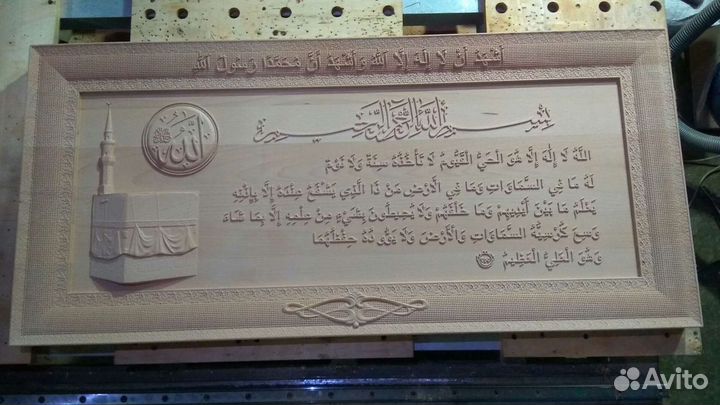 أَشْهَدُ أَنْ لَا إِلَهَ إِلَّا اللَّهُ وَأَشْهَدُ أَنَّ مُحَمَّدًا رَسُولُ اللَّهِ
بِسْمِ اللَّهِ الرَّحْمَنِ الرَّحِيمِ
اللَّهُ
اللَّهُ لَا إِلَٰهَ إِلَّا هُوَ الْحَيُّ الْقَيُّومُ لَا تَأْخُذُهُ سِنَةٌ وَلَا نَوْمٌ
لَهُ مَا فِي السَّمَاوَاتِ وَمَا فِي الْأَرْضِ مَنْ ذَا الَّذِي يَشْفَعُ عِنْدَهُ إِلَّا بِإِذْنِهِ
يَعْلَمُ مَا بَيْنَ أَيْدِيهِمْ وَمَا خَلْفَهُمْ وَلَا يُحِيطُونَ بِشَيْءٍ مِنْ عِلْمِهِ إِلَّا بِمَا شَاءَ
وَسِعَ كُرْسِيُّهُ السَّمَاوَاتِ وَالْأَرْضَ وَلَا يَؤُدُهُ حِفْظُهُمَا
وَهُوَ الْعَلِيُّ الْعَظِيمُ
Avito